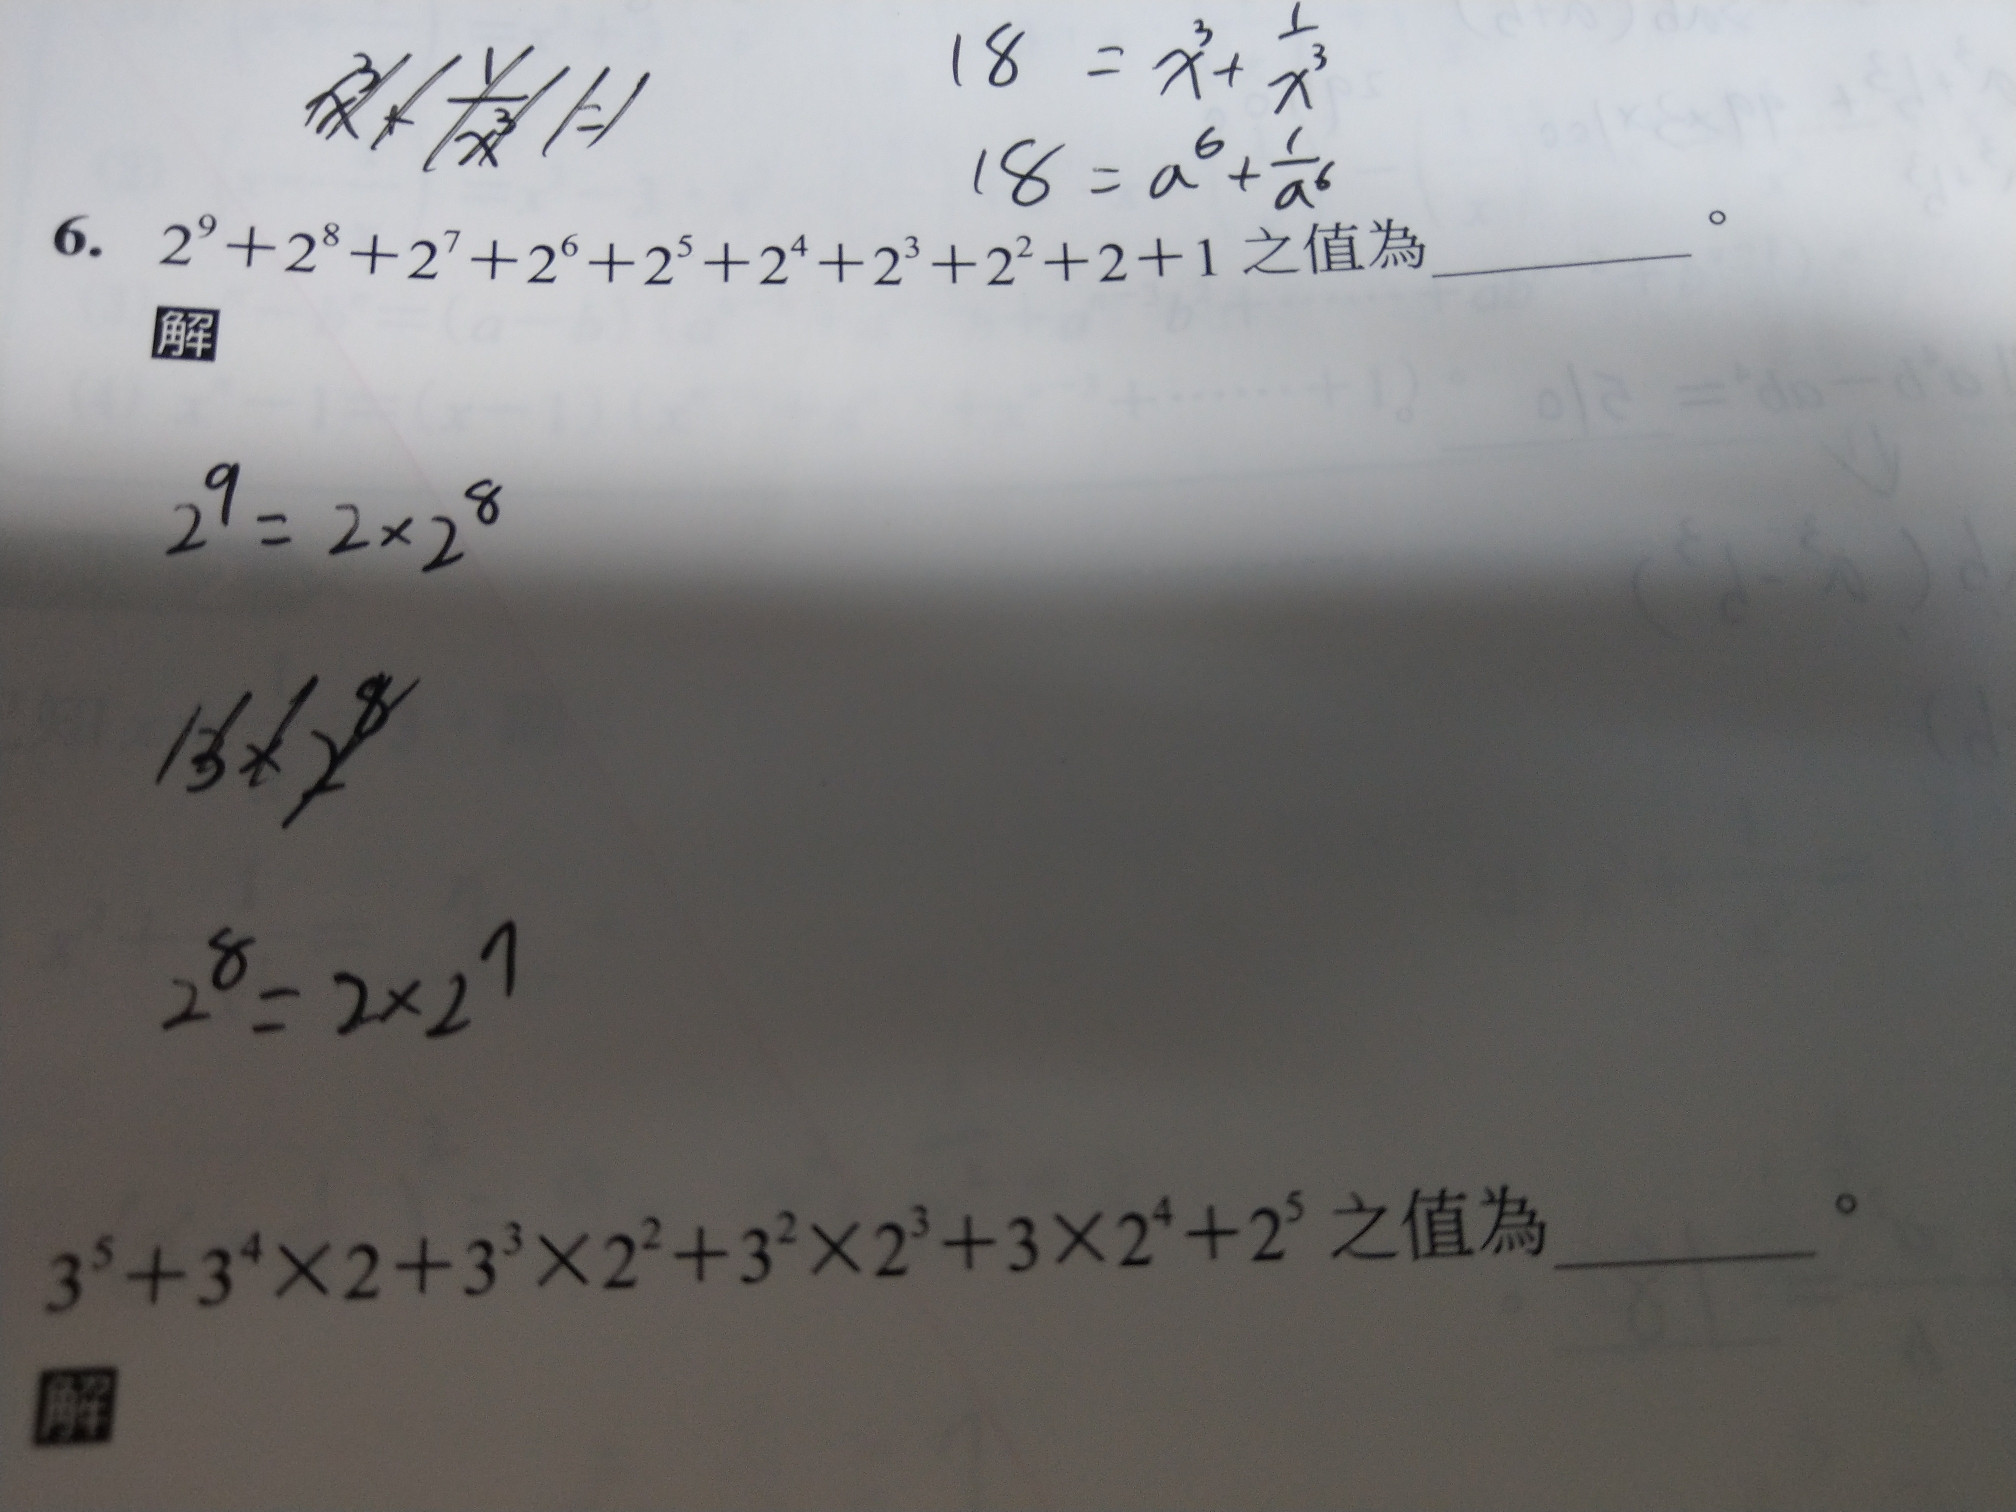 18 = x³ + 1/x³
18 = a⁶ + 1/a⁶
6. 2⁹+2⁸+2⁷+2⁶+2⁵+2⁴+2³+2²+2+1 之值為________。
解
2⁹ = 2×2⁸
13×2⁸
2⁸ = 2×2⁷
3⁵+3⁴×2+3³×2²+3²×2³+3×2⁴+2⁵ 之值為________。
解